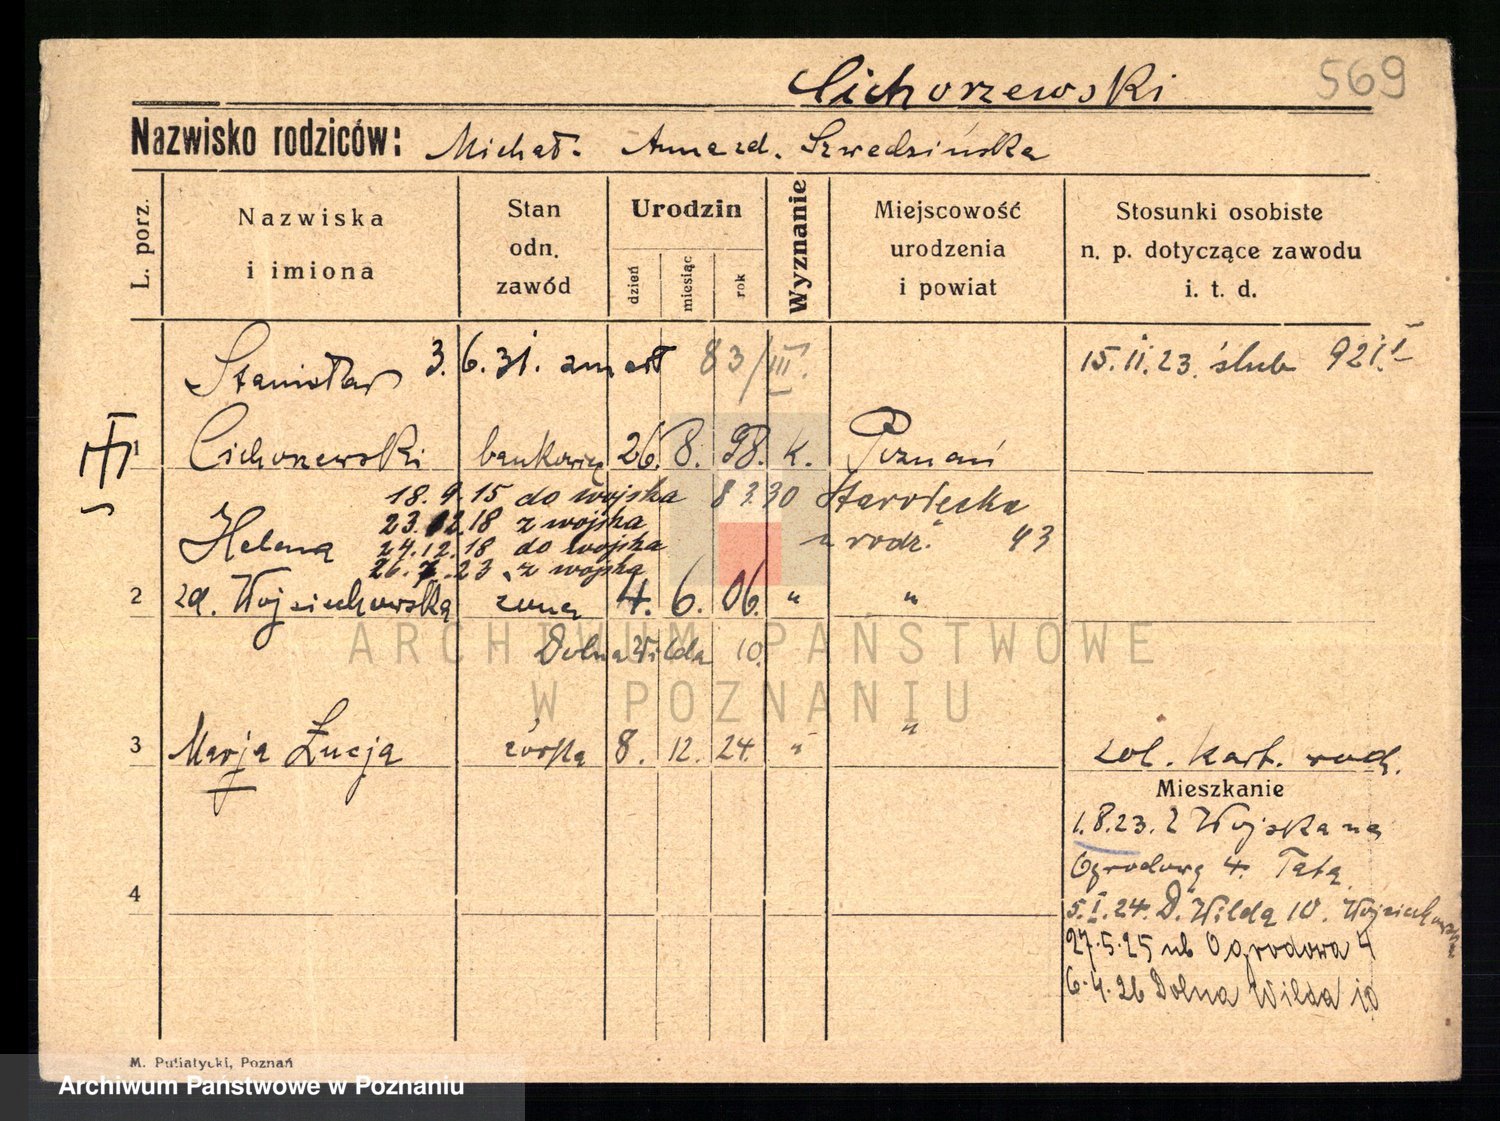 Cichorzewski 569
Nazwisko rodziców: Michał. Anna zd. Szwedzińska
L. porz.
Nazwiska
i imiona
Stan
odn.
zawód
Urodzin
dzień
miesiąc
rok
Wyznanie
Miejscowość
urodzenia
i powiat
Stosunki osobiste
n. p. dotyczące zawodu
i. t. d.
Stanisław 3.6.31. zmarł 83/III. 15.II.23 ślub 921.I
1 Cichorzewski bankowiec 26. 8. 98. k. Poznań
18.9.15 do wojska 8 3 30 Starołęcka
23.12.18 z wojska
Helena 24.12.18 do wojska u rodz. 43
26.7.23 z wojska
2 zd. Wojciechowska żona 4. 6. 06. " "
Dolna Wilda 10.
3 Marja Łucja córka 8. 12. 24. " " zoł. kart. rodz.
Mieszkanie
1.8.23. z Wojska na
Ogrodową 4. Tata
4
5.I.24. D. Wilda 10. Wojciechowska
27.5.25 ub Ogrodowa 4
6.4.26 Dolna Wilda 10
M. Putiatycki, Poznań
ARCHIWUM PAŃSTWOWE
W POZNANIU
Archiwum Państwowe w Poznaniu